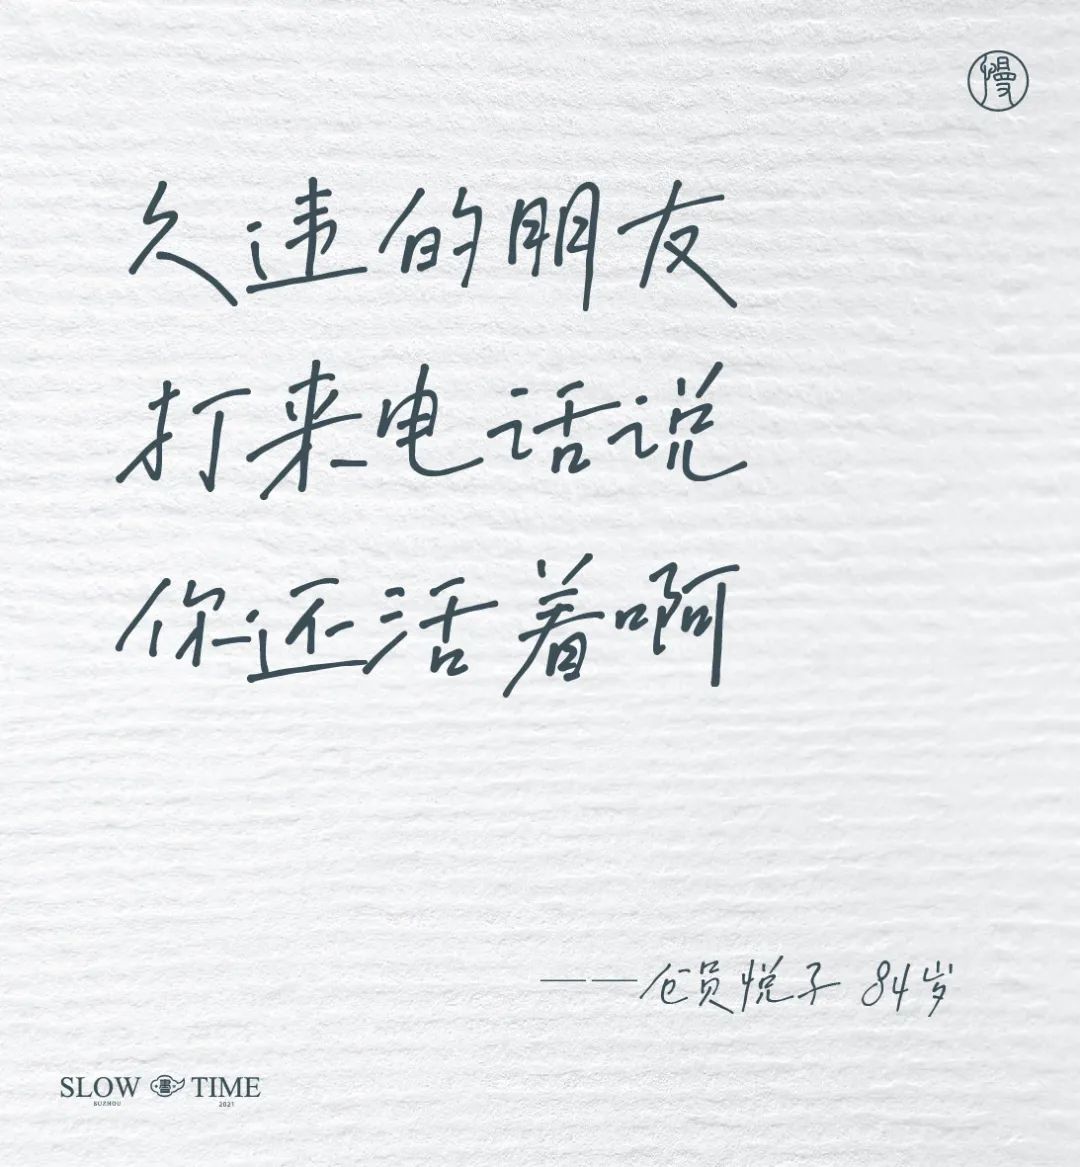 慢
久违的朋友
打来电话说
你还活着啊
——仓员悦子 84岁
SLOW 書 TIME
SUZHOU 2021